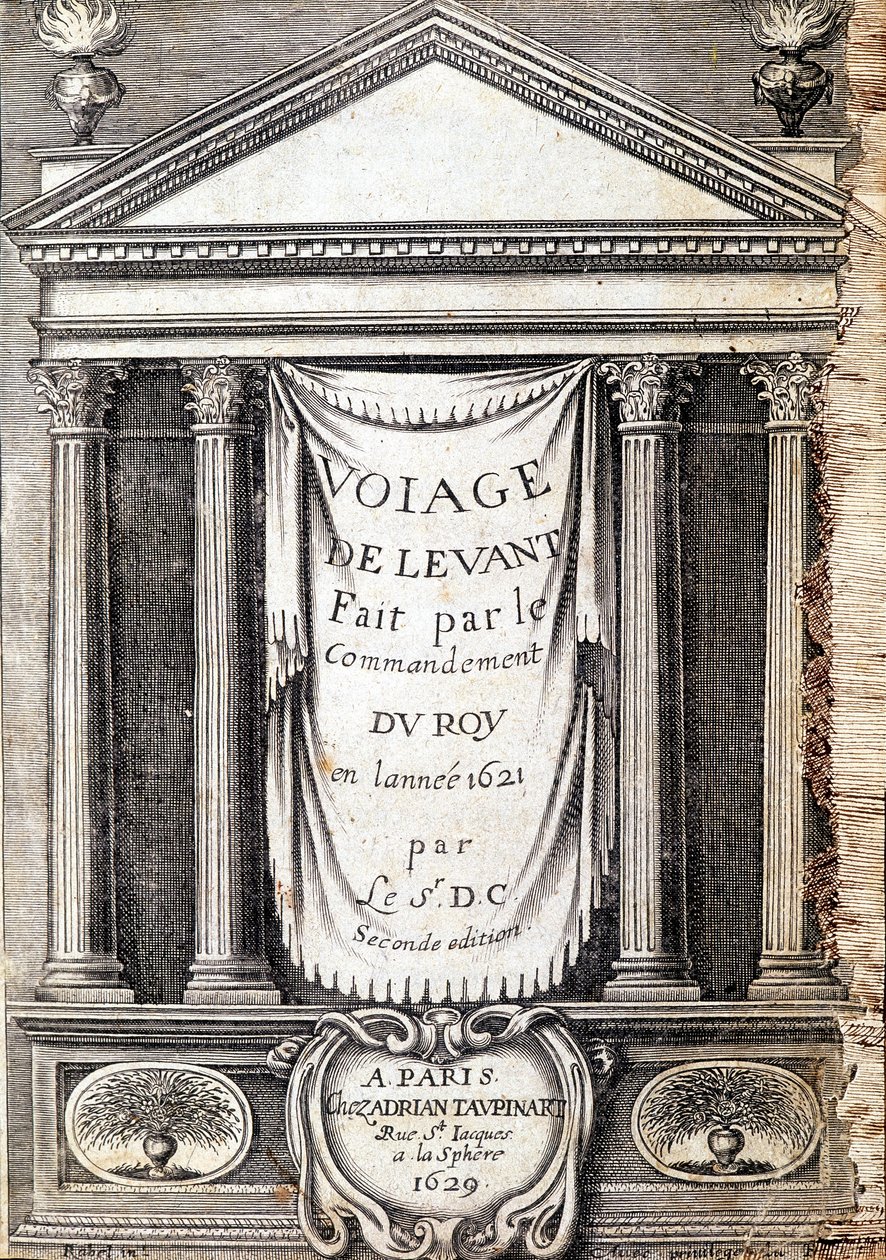 VOIAGE
DE LEVANT
Fait par le
Commandement
DV ROY
en lanneé 1621
par
Le Sr. D. C.
Seconde edition.
A. PARIS.
Chez ADRIAN TAVPINART
Rue St. Iacques
a la Sphere
1629.
Rabel in.
Auec priuilege